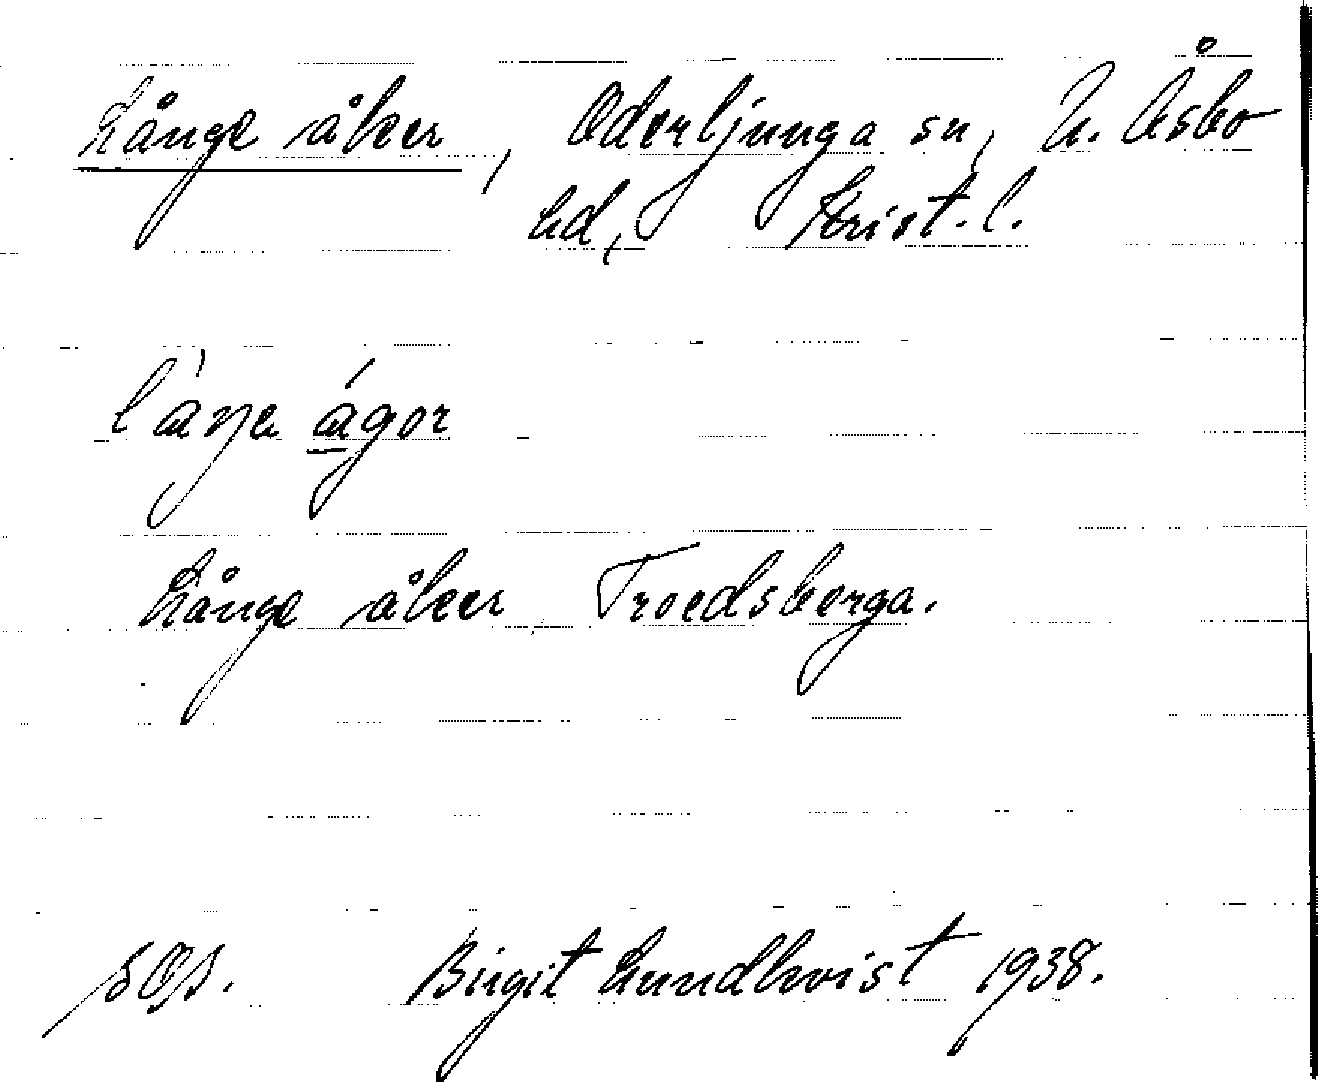 Långe åker, Oderljunga sn, N. Åsbo
hd, Krist. l.
Långe åker Troedsberga.
Birgit Lundkvist 1938.